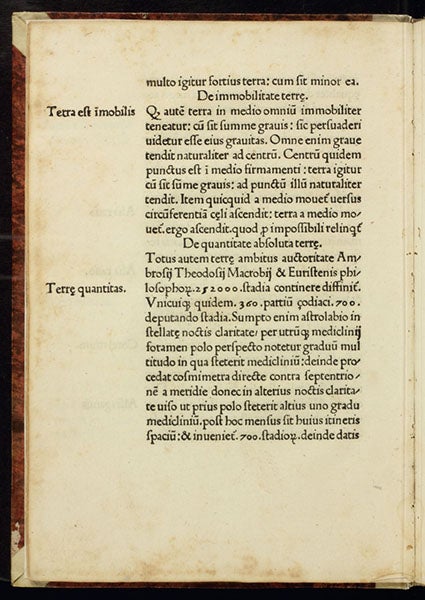 multo igitur fortius terra: cum sit minor ea.
De immobilitate terrę.
Terra est īmobilis
Qꝫ autē terra in medio omniū immobiliter
teneatur: cū sit summe grauis: sic persuaderi
uidetur esse eius grauitas. Omne enim graue
tendit naturaliter ad centrū. Centrū quidem
punctus est ī medio firmamenti: terra igitur
cū sit sūme grauis: ad punctū illū naturaliter
tendit. Item quicquid a medio mouet᷑ uersus
circūferentiā cęli ascendit: terra a medio mo-
uet᷑. ergo ascendit. quod ꝓ impossibili relinqt᷑
De quantitate absoluta terrę.
Totus autem terrę ambitus auctoritate Am
brosij Theodosij Macrobij & Euristenis phi
Terrę quantitas.
losophoꝝ. 252000. stadia continere diffinit᷑.
Vnicuiqꝫ quidem. 360. partiū ʒodiaci. 700.
deputando stadia. Sumpto enim astrolabio in
stellatę noctis claritate/ per utrūqꝫ mediclinij
foramen polo perspecto notetur graduū mul
titudo in qua steterit medicliniū: deinde pro
cedat cosmimetra directe contra septentrio-
nē a meridie donec in alterius noctis clarita-
te uiso ut prius polo steterit altius uno gradu
medicliniū. post hoc mensus sit huius itineris
spaciū: & inueniet᷑. 700. stadioꝝ. deinde datis